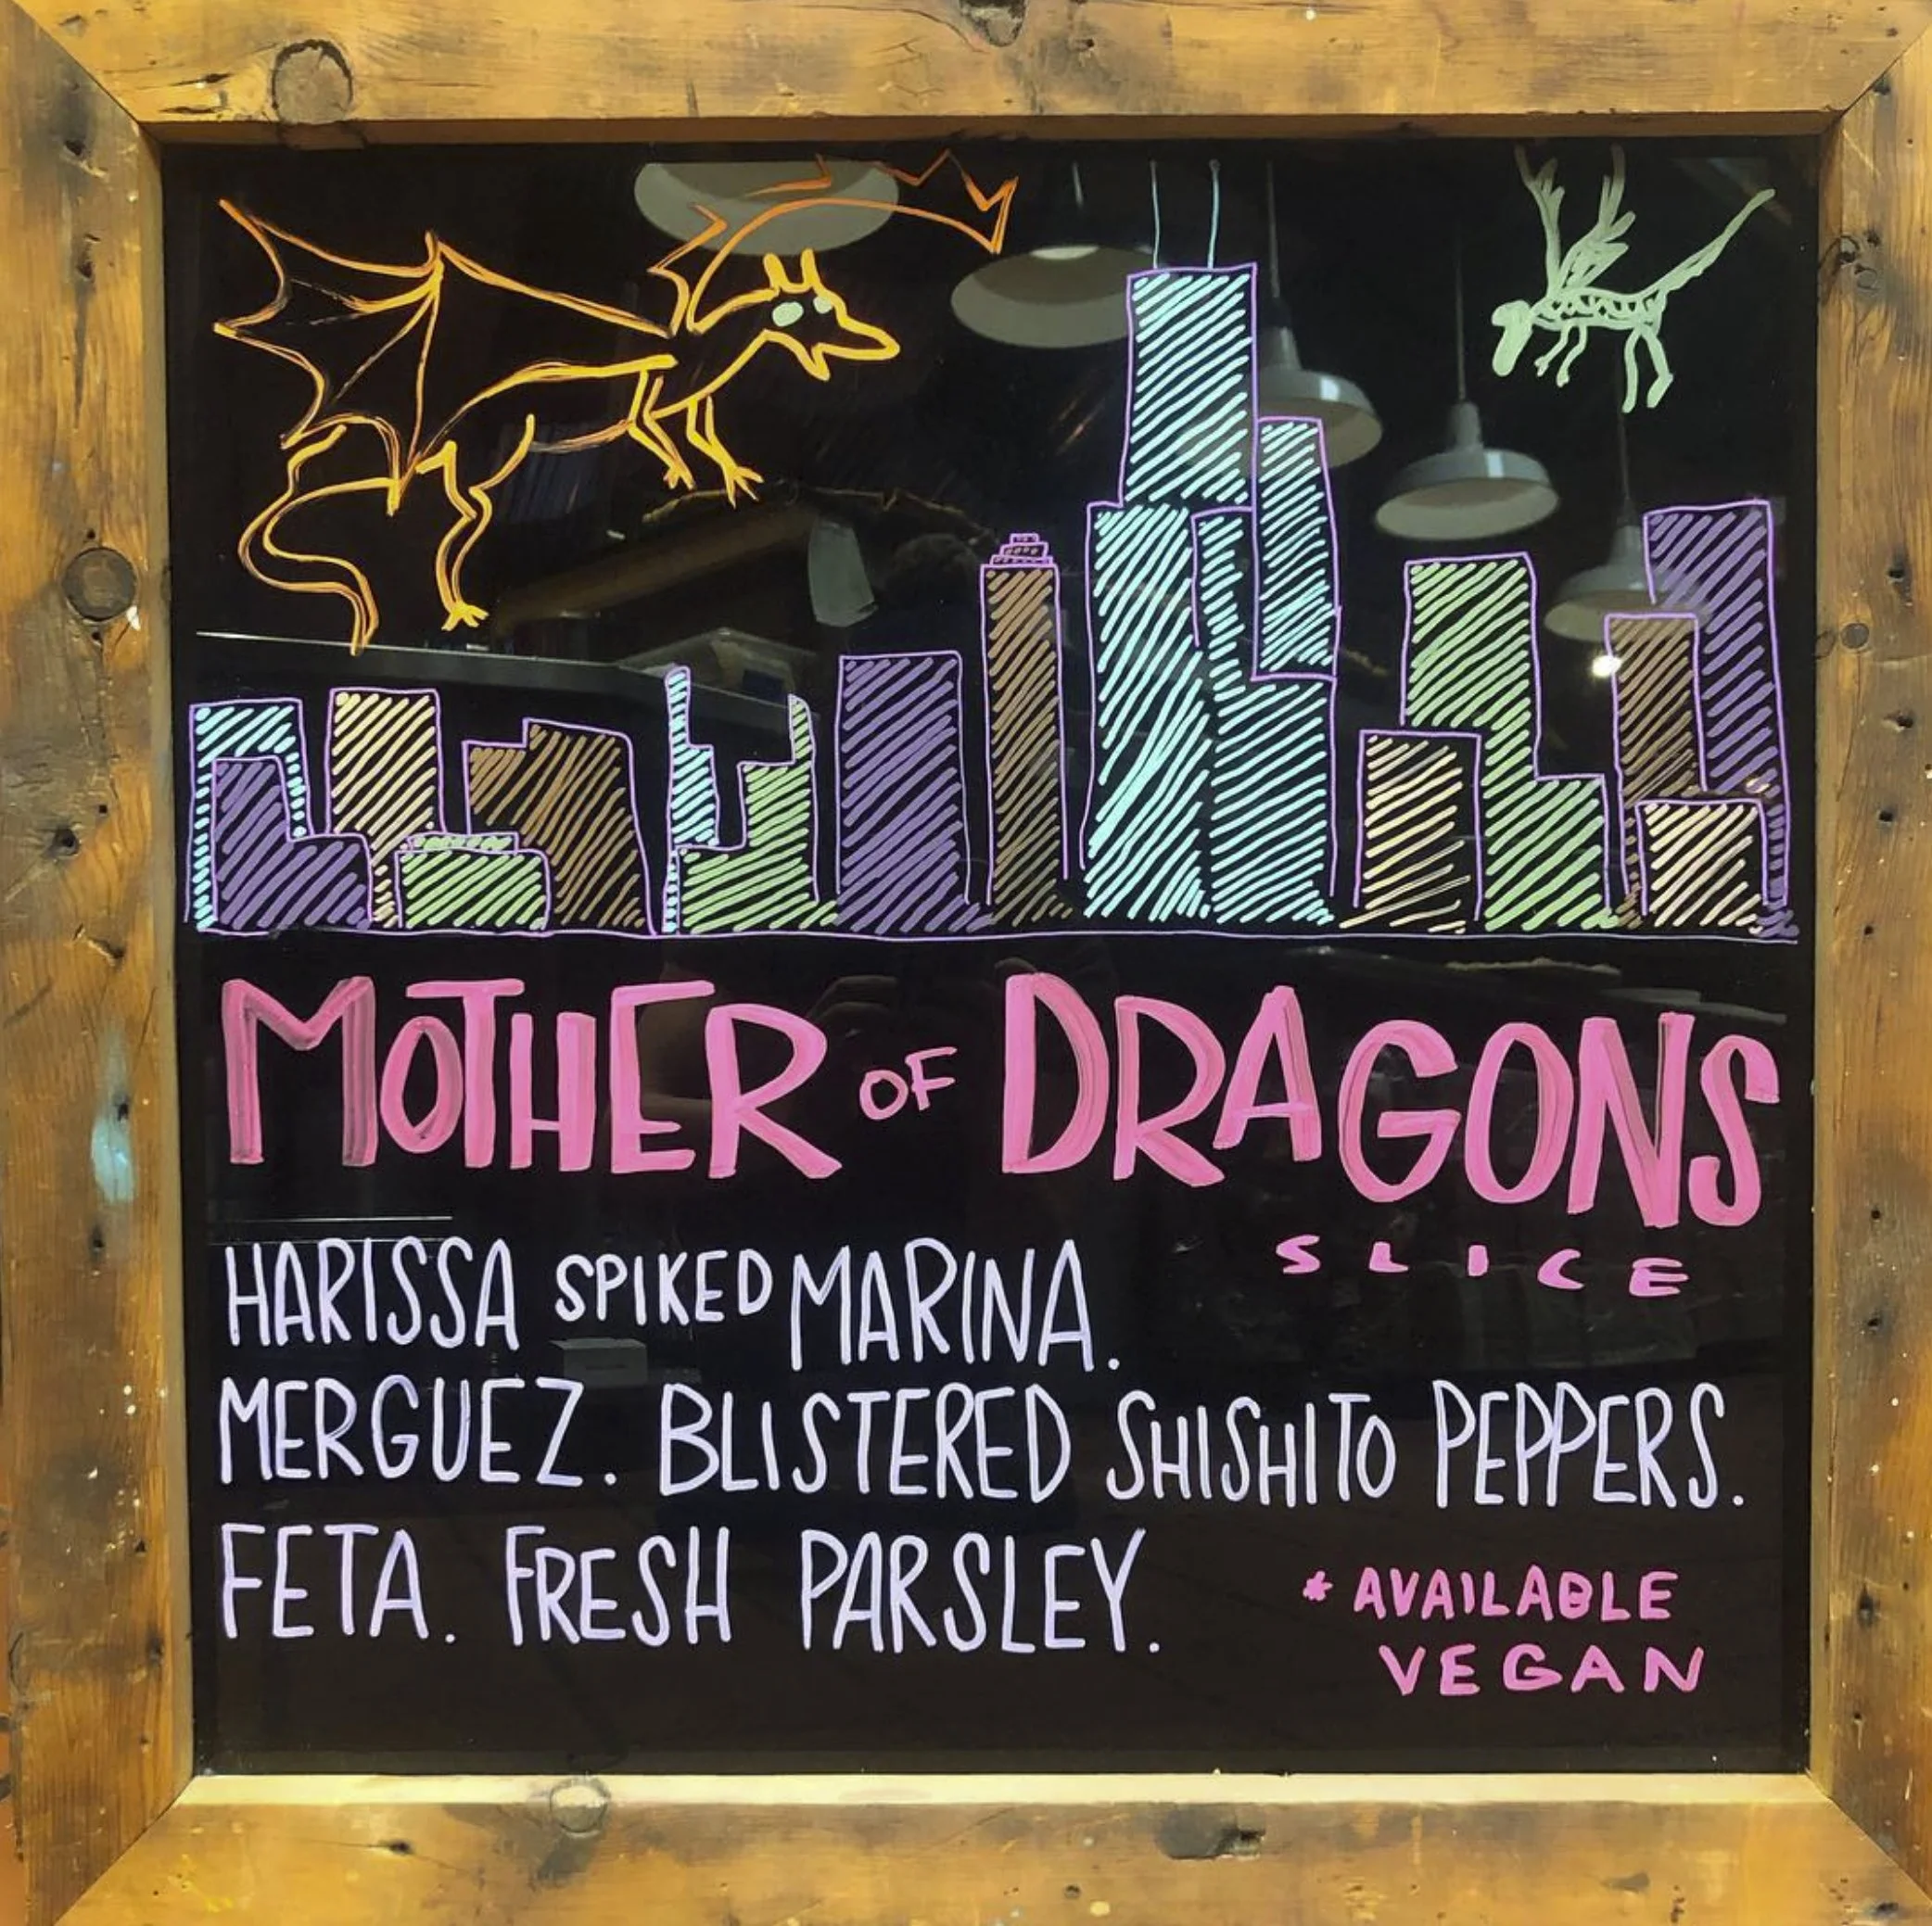 MOTHER OF DRAGONS
SLICE
HARISSA SPIKED MARINA.
MERGUEZ. BLISTERED SHISHITO PEPPERS.
FETA. FRESH PARSLEY.
* AVAILABLE
VEGAN